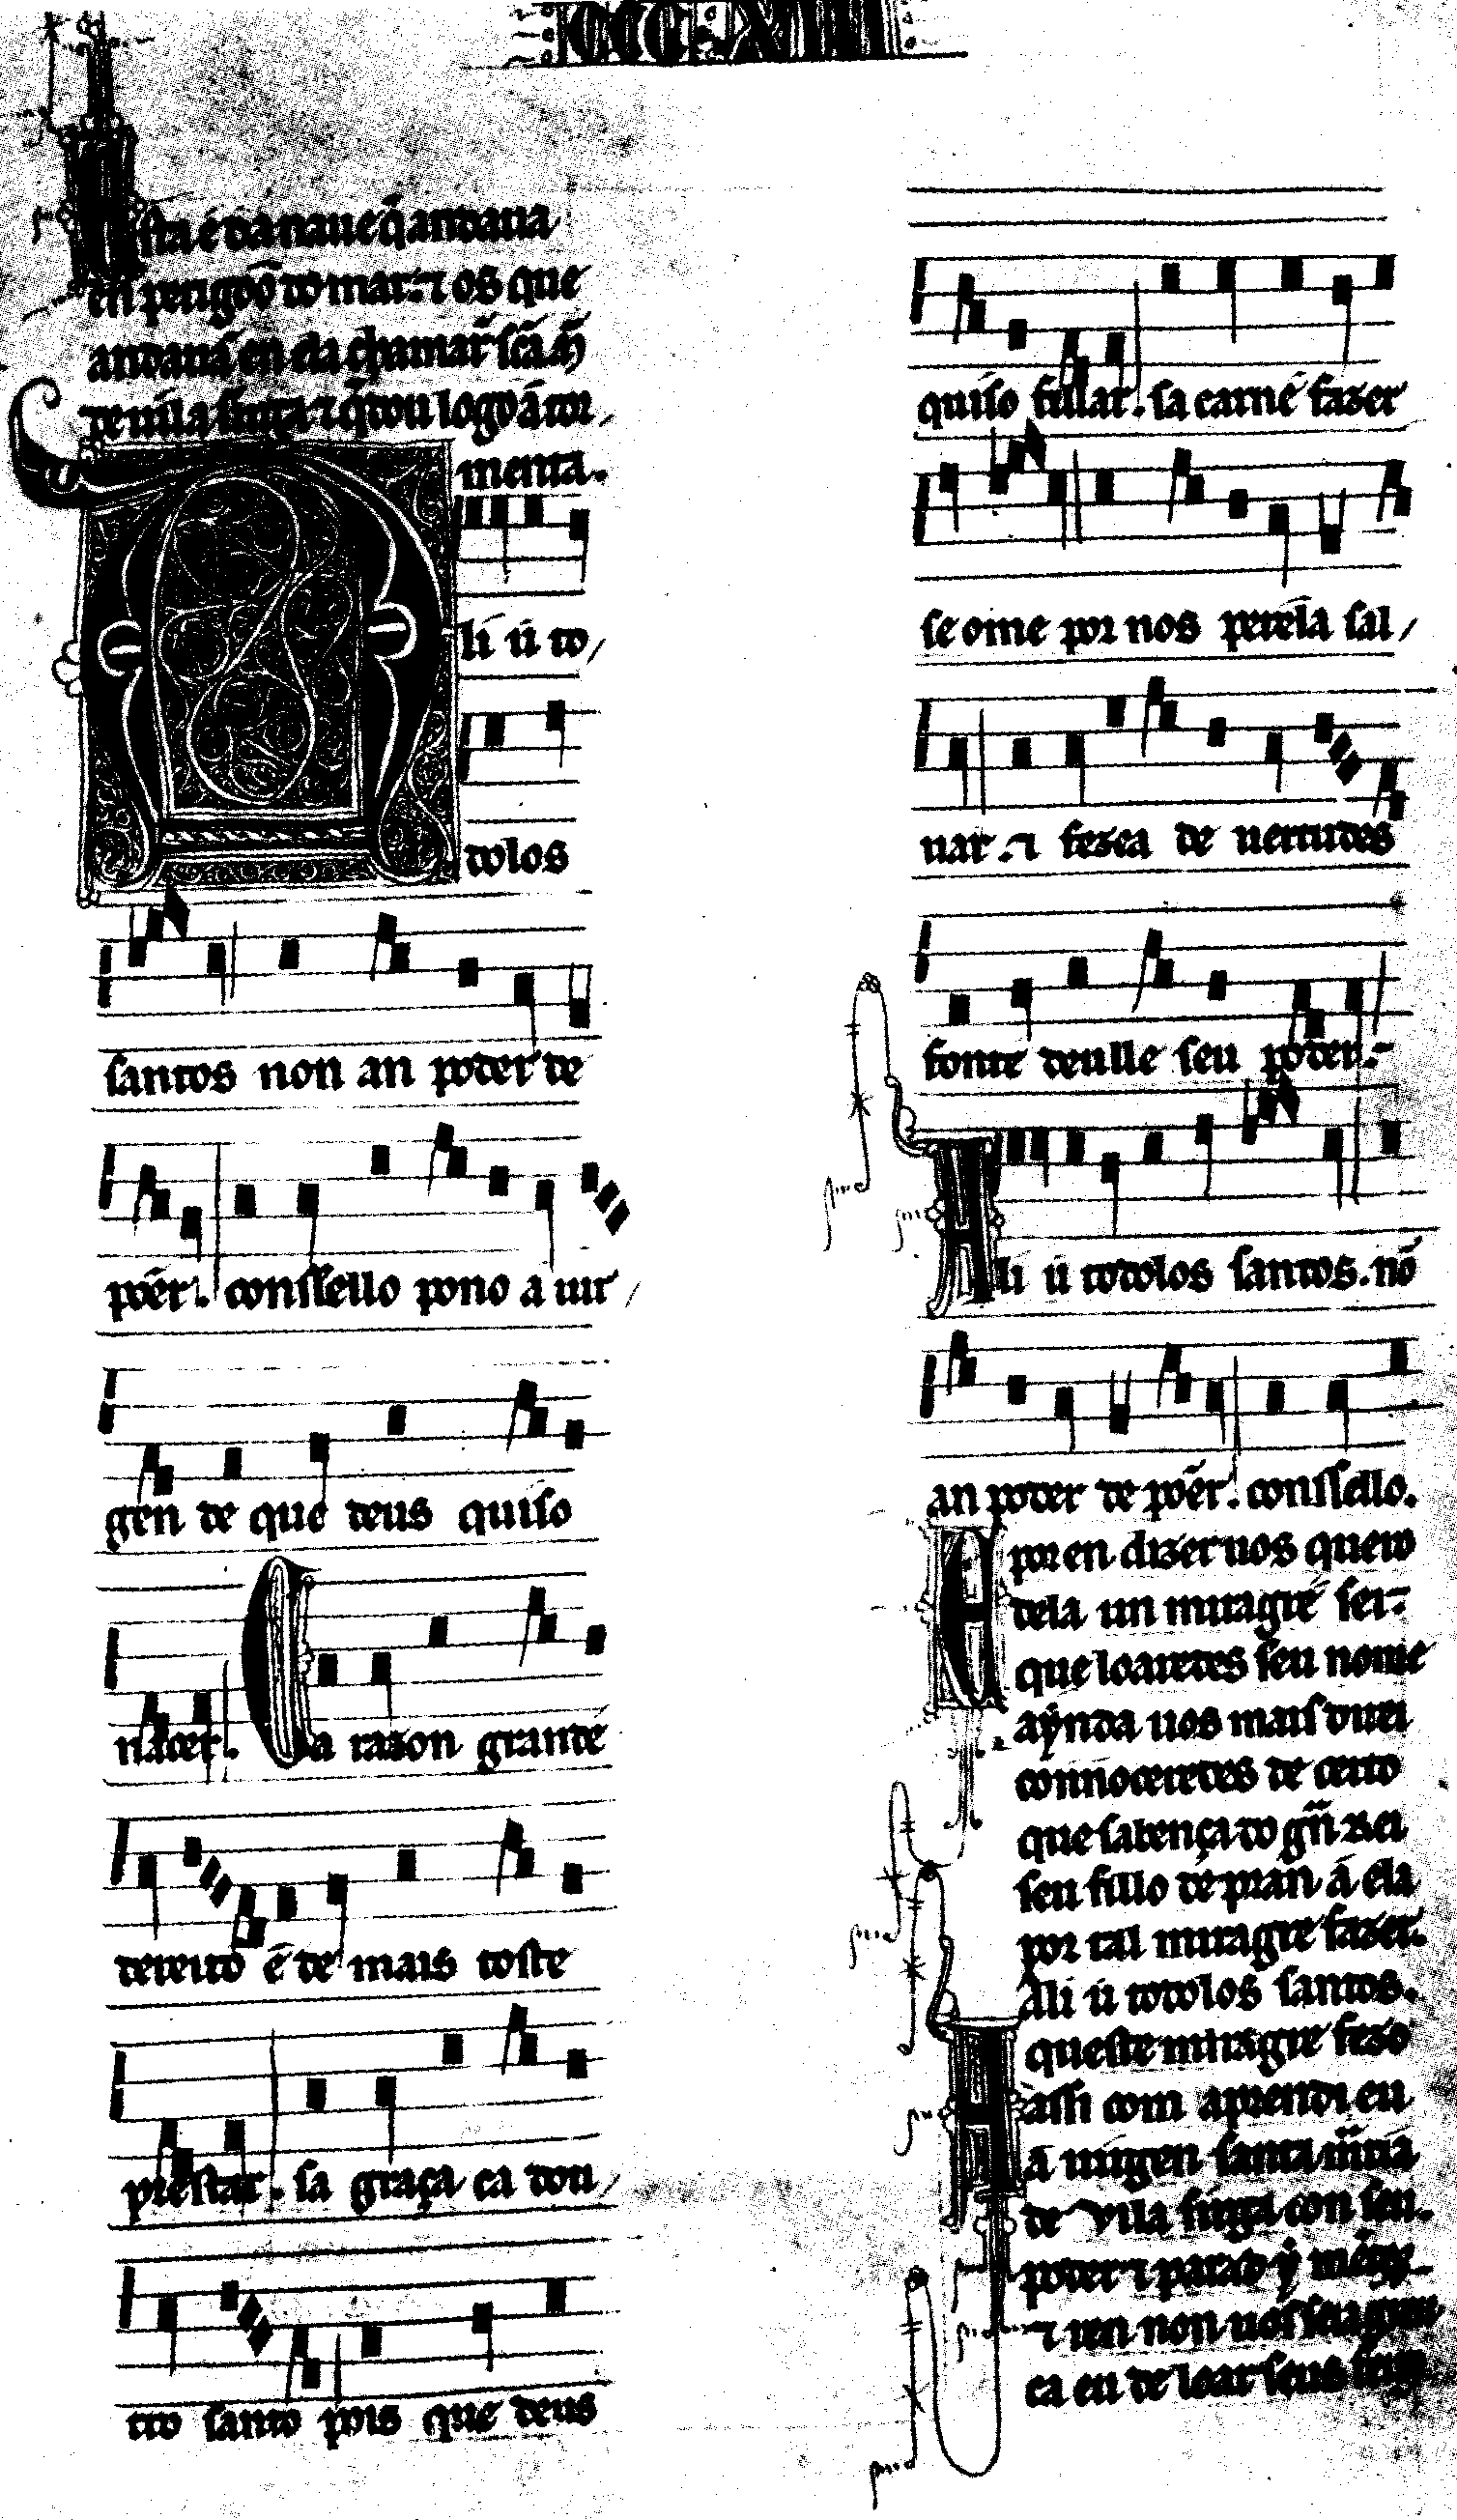 CCCXIII
Esta é da naue q̃ andaua
en perigoo do mar. ⁊ os que
andauã en ela chamarõ sc̃a mª
de uila sirga ⁊ q̃dou logo a tor
menta.
Ali ú to
dolos
santos non an poder de
põer. conssello pono a uir
gen de que deus quiso
nacer. Ca razon grande
dereito é de mais toste
prestar. sa graça ca don
tro santo pois que deus
quiso fillar. sa carne fazer
se ome por nos perela sal
uar. ⁊ fezea de uertudes
fonte deulle seu poder.
Ali ú todolos santos. nõ
an poder de põer. conssello.
E por en dizer uos quero
dela un miragre sei.
que loaredes seu nome
aynda uos mais direi
connoceredes de certo
que sabença do gñ Rei
seu fillo de pran á ela
por tal miragre fazer.
Ali ú todolos santos.
Aqueste miragre fezo
assi com aprendi eu
a uirgen santa m̃ria
de Vila sirga con seu.
poder ⁊ parad y mẽtes
⁊ ren non uos sera greu
ca eu de loar seus feitos